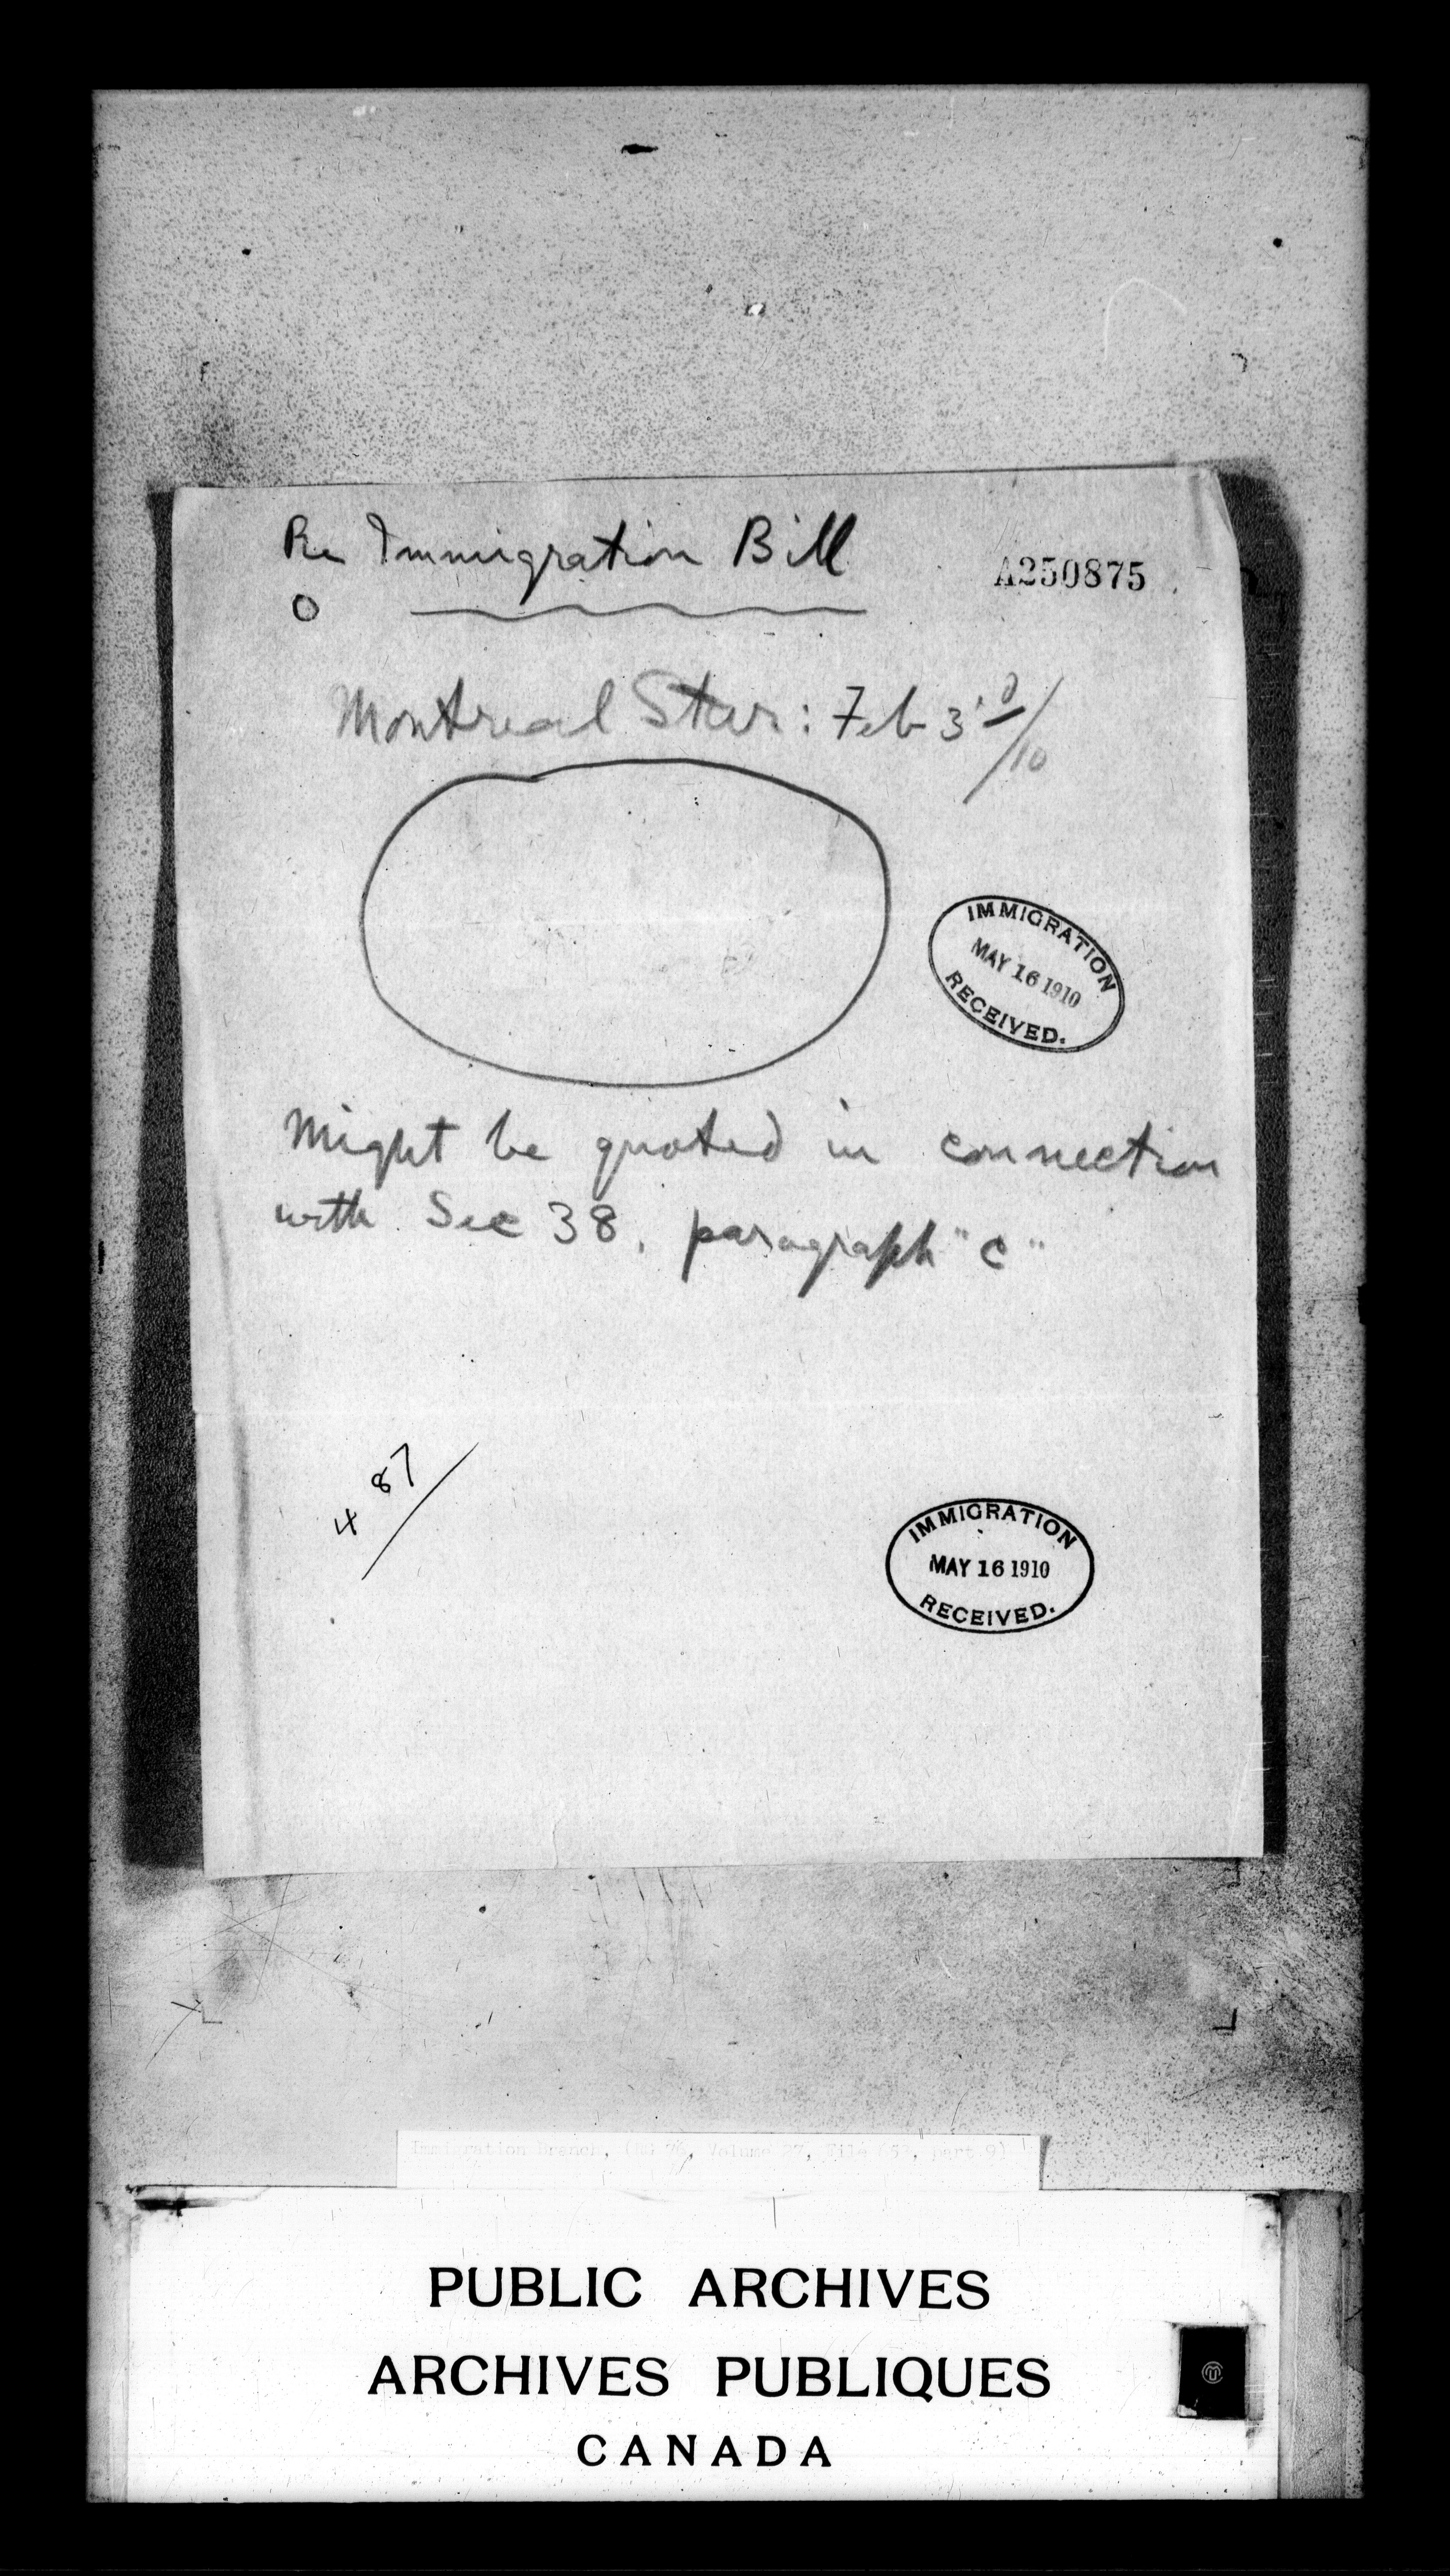 Re Immigration Bill
A250875
Montreal Star: Feb 3rd/10
IMMIGRATION
MAY 16 1910
RECEIVED.
Might be quoted in connection
with Sec 38, paragraph "C"
487
IMMIGRATION
MAY 16 1910
RECEIVED.
Immigration Branch, (RG 76, Volume 27, File 653, part 9)
PUBLIC ARCHIVES
ARCHIVES PUBLIQUES
CANADA